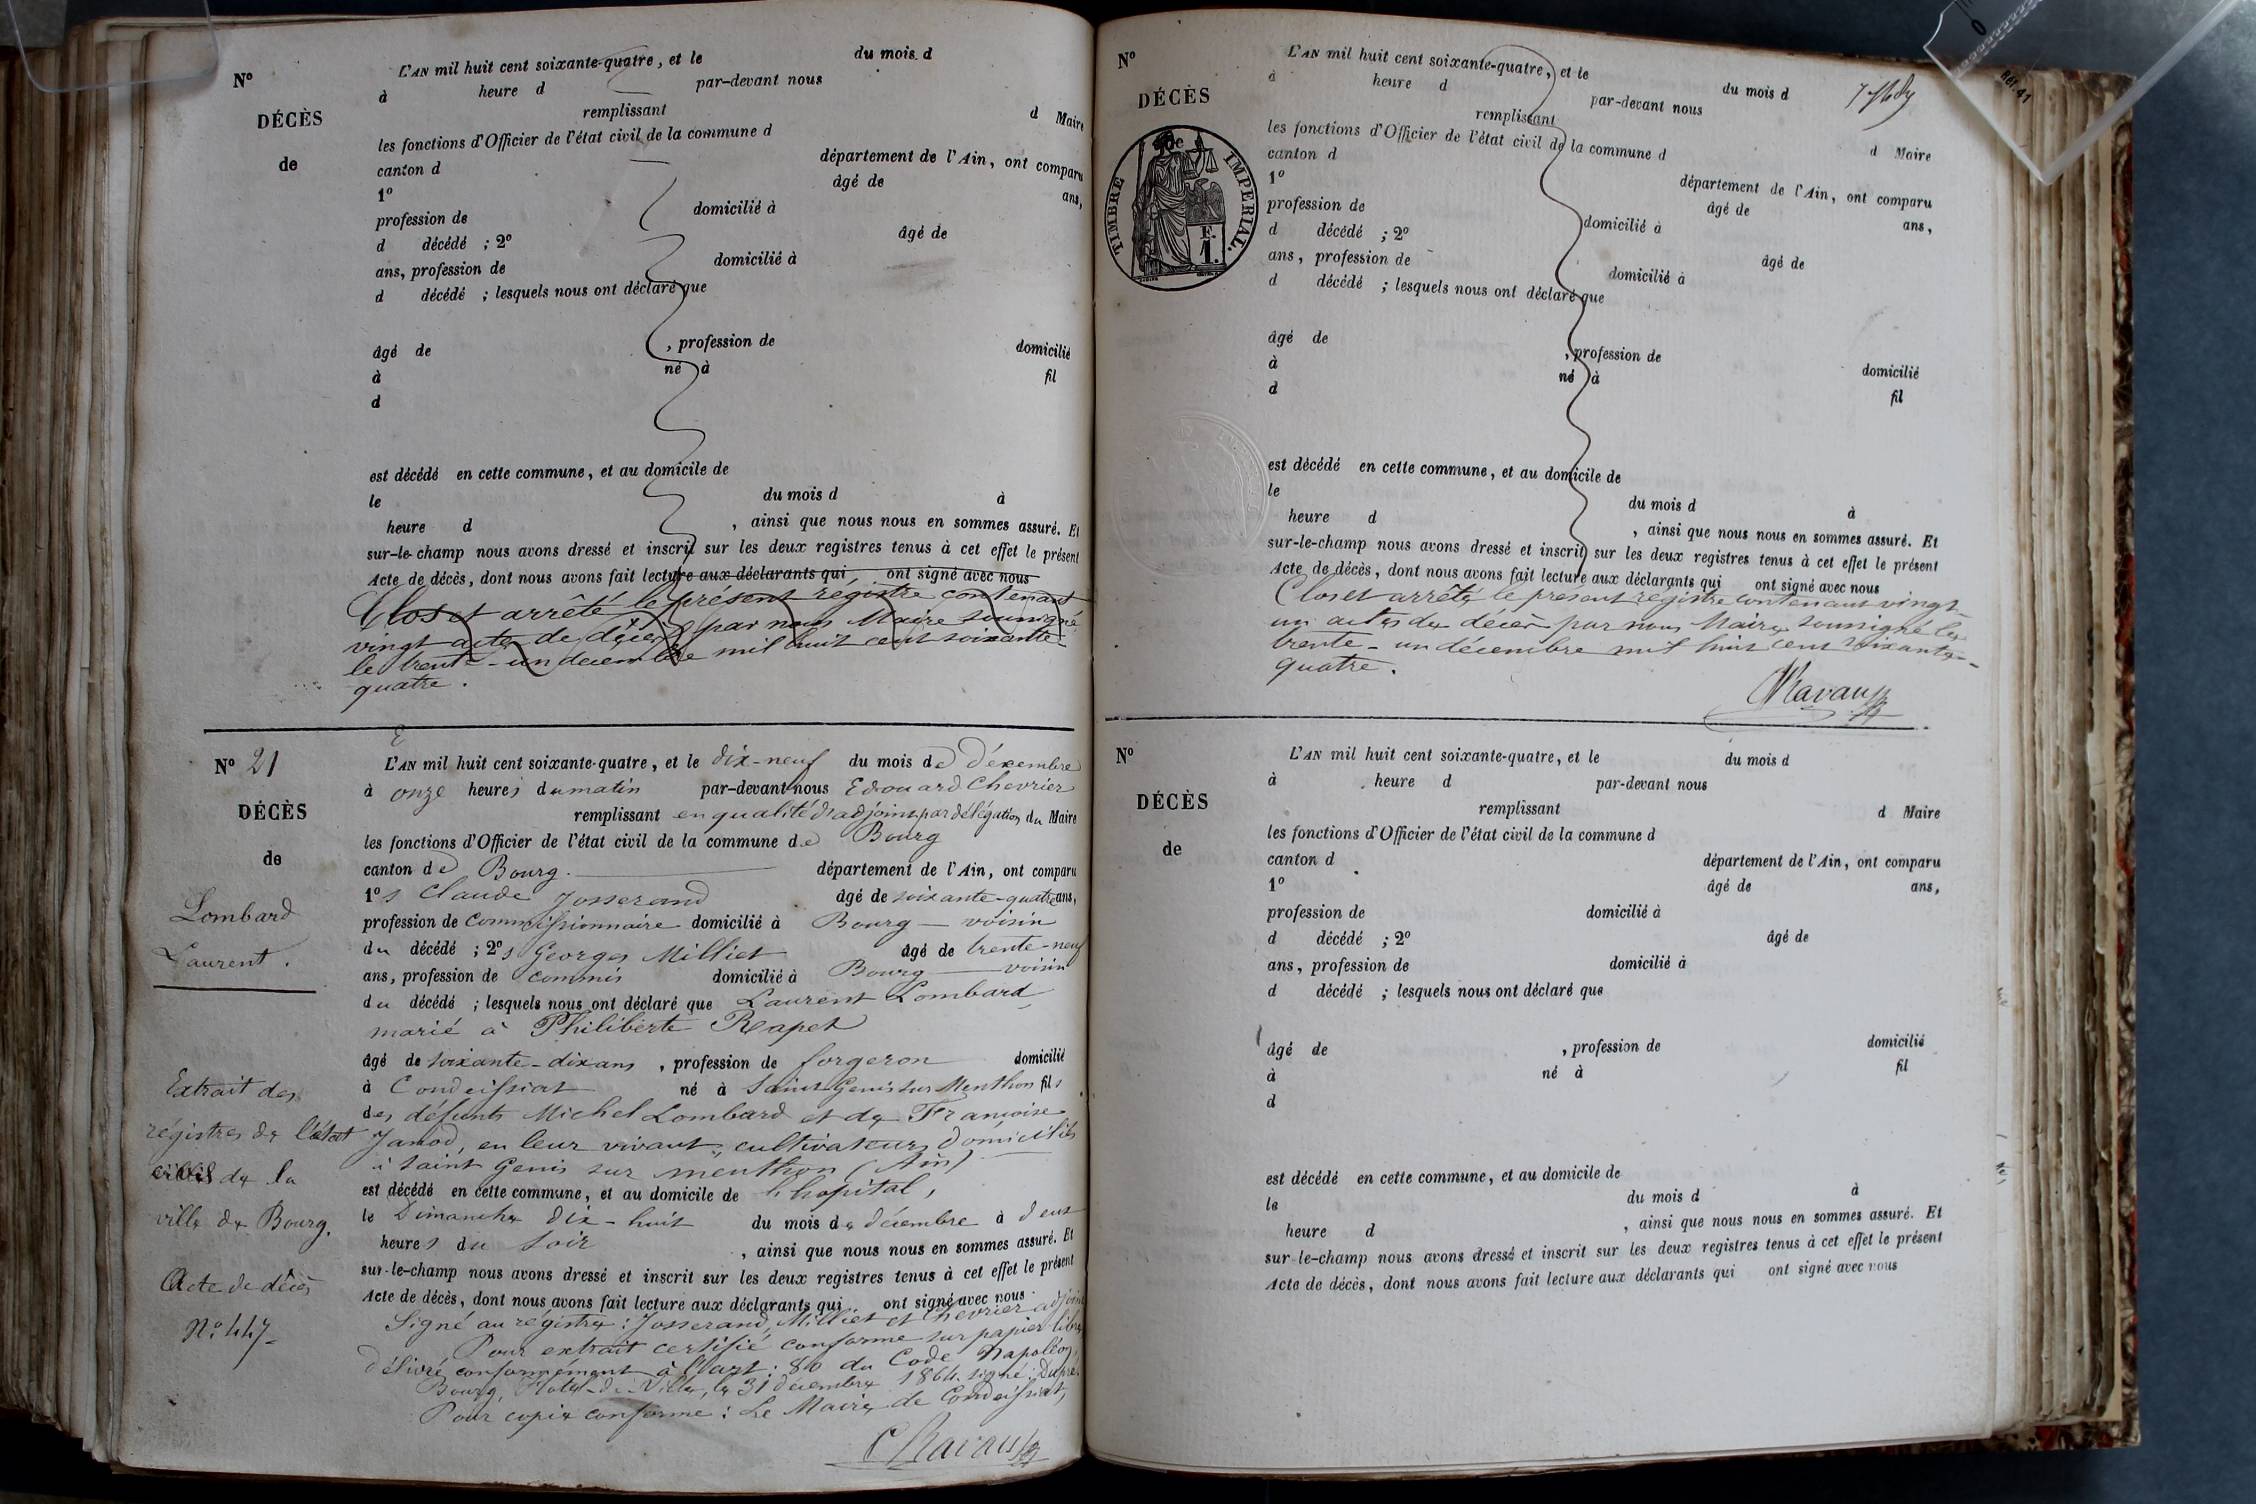 N° L'AN mil huit cent soixante-quatre, et le du mois d
à heure d par-devant nous
DÉCÈS remplissant d Maire
les fonctions d'Officier de l'état civil de la commune d
de canton d département de l'Ain, ont comparu
1° âgé de ans,
profession de domicilié à
d décédé ; 2° âgé de
ans, profession de domicilié à
d décédé ; lesquels nous ont déclaré que
âgé de , profession de domicilié
à né à fil
d
est décédé en cette commune, et au domicile de
le du mois d à
heure d , ainsi que nous nous en sommes assuré. Et
sur-le-champ nous avons dressé et inscrit sur les deux registres tenus à cet effet le présent
Acte de décès, dont nous avons fait lecture aux déclarants qui ont signé avec nous
Clos et arrêté le présent registre contenant
vingt actes de décès par nous Maire soussigné
le trente-un decembre mil huit cent soixante-
quatre.
N° 21 L'AN mil huit cent soixante-quatre, et le dix-neuf du mois de Décembre
à onze heures du matin par-devant nous Edouard Chevrier
DÉCÈS remplissant en qualité d'adjoint par délégation du Maire
les fonctions d'Officier de l'état civil de la commune de Bourg
de canton de Bourg. département de l'Ain, ont comparu
1° s Claude Josserand âgé de soixante-quatre ans,
Lombard profession de Commissionnaire domicilié à Bourg — voisin
Laurent. du décédé ; 2° s Georges Milliet âgé de trente-neuf
ans, profession de commis domicilié à Bourg — voisin
du décédé ; lesquels nous ont déclaré que Laurent Lombard
marié à Philiberte Rapet
âgé de soixante-dix ans , profession de forgeron domicilié
Extrait des à Condeissiat né à Saint Genis sur Menthon fils
des défunts Michel Lombard et de Françoise
registres de l'état Janod, en leur vivant, cultivateurs domiciliés
civil de la à Saint Genis sur menthon (Ain)
est décédé en cette commune, et au domicile de l'hopital,
ville de Bourg. le Dimanche dix-huit du mois de décembre à deux
heures du soir , ainsi que nous nous en sommes assuré. Et
Acte de décès sur-le-champ nous avons dressé et inscrit sur les deux registres tenus à cet effet le présent
Acte de décès, dont nous avons fait lecture aux déclarants qui ont signé avec nous
N° 447 Signé au registre : Josserand, Milliet et Chevrier adjoint
Pour extrait certifié conforme sur papier libre
délivré conformément à l'art: 80 du Code Napoléon,
Bourg, Hotel-de-Ville, le 31 décembre 1864. signé : Dupré.
Pour copie conforme : Le Maire de Condeissiat,
CRavaux
N° L'AN mil huit cent soixante-quatre, et le du mois d
à heure d par-devant nous
DÉCÈS remplissant d Maire
les fonctions d'Officier de l'état civil de la commune d
de canton d département de l'Ain, ont comparu
TIMBRE IMPERIAL.
F.
1.
1° âgé de ans,
profession de domicilié à
d décédé ; 2° âgé de
ans, profession de domicilié à
d décédé ; lesquels nous ont déclaré que
âgé de , profession de domicilié
à né à fil
d
est décédé en cette commune, et au domicile de
le du mois d à
heure d , ainsi que nous nous en sommes assuré. Et
sur-le-champ nous avons dressé et inscrit sur les deux registres tenus à cet effet le présent
Acte de décès, dont nous avons fait lecture aux déclarants qui ont signé avec nous
Clos et arrêté le présent registre contenant vingt-
un actes de décès par nous Maire soussigné le
trente-un décembre mil huit cent soixante-
quatre.
CRavaux
N° L'AN mil huit cent soixante-quatre, et le du mois d
à heure d par-devant nous
DÉCÈS remplissant d Maire
les fonctions d'Officier de l'état civil de la commune d
de canton d département de l'Ain, ont comparu
1° âgé de ans,
profession de domicilié à
d décédé ; 2° âgé de
ans, profession de domicilié à
d décédé ; lesquels nous ont déclaré que
âgé de , profession de domicilié
à né à fil
d
est décédé en cette commune, et au domicile de
le du mois d à
heure d , ainsi que nous nous en sommes assuré. Et
sur-le-champ nous avons dressé et inscrit sur les deux registres tenus à cet effet le présent
Acte de décès, dont nous avons fait lecture aux déclarants qui ont signé avec nous
0
Réf. 41